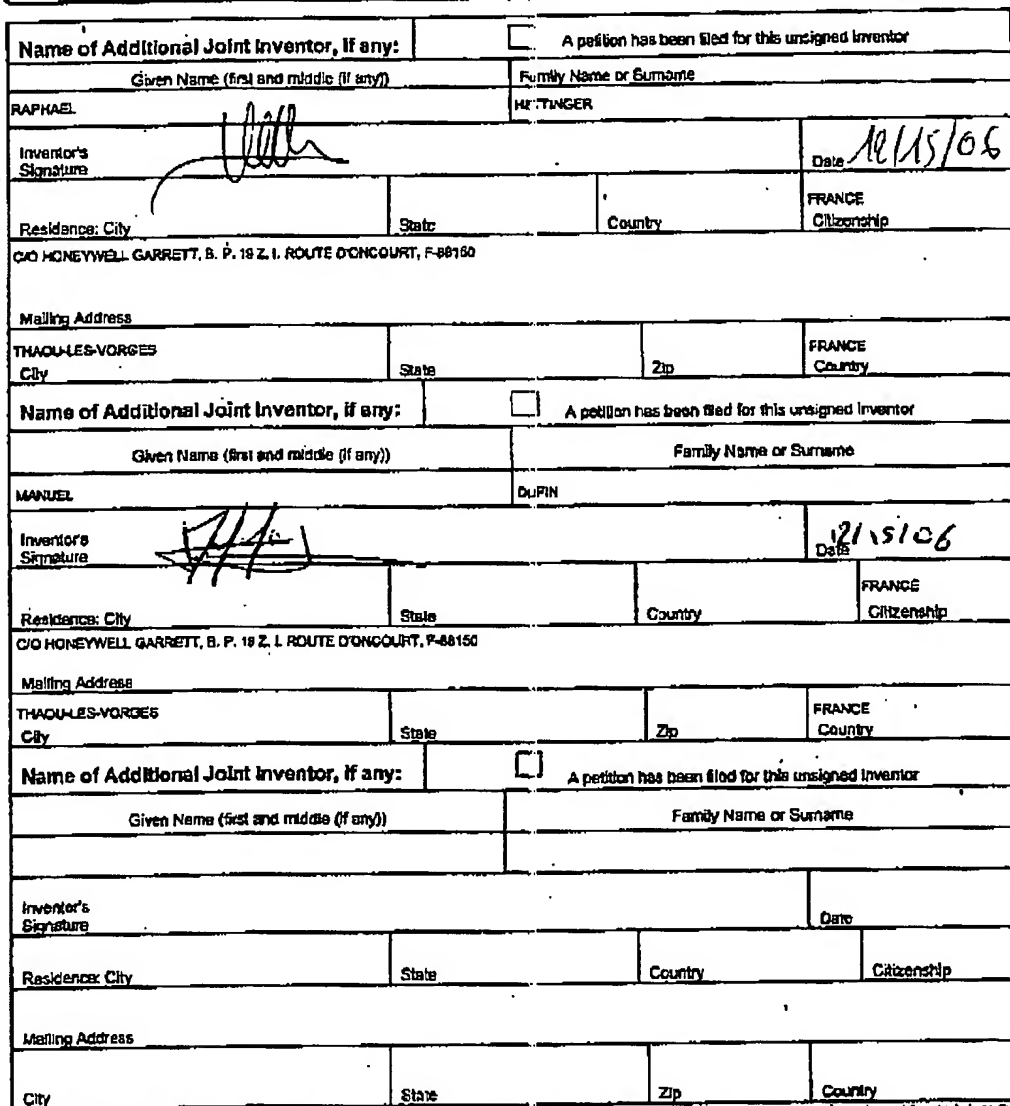 Name of Additional Joint Inventor, if any: A petition has been filed for this unsigned inventor
Given Name (first and middle (if any)) Family Name or Surname
RAPHAEL
Inventor's Signature Date 12/15/06
Residence: City State Country FRANCE Citizenship
C/O HONEYWELL GARRETT, B. P. 19 Z. I. ROUTE D'ONCOURT, F-88150
Mailing Address
THAOU-LES-VORGES City State Zip FRANCE Country
Name of Additional Joint Inventor, if any: A petition has been filed for this unsigned inventor
Given Name (first and middle (if any)) Family Name or Surname
MANUEL
Inventor's Signature Date 12/15/06
Residence: City State Country FRANCE Citizenship
C/O HONEYWELL GARRETT, B. P. 19 Z. I. ROUTE D'ONCOURT, F-88150
Mailing Address
THAOU-LES-VORGES City State Zip FRANCE Country
Name of Additional Joint Inventor, if any: A petition has been filed for this unsigned inventor
Given Name (first and middle (if any)) Family Name or Surname
Inventor's Signature Date
Residence: City State Country Citizenship
Mailing Address
City State Zip Country